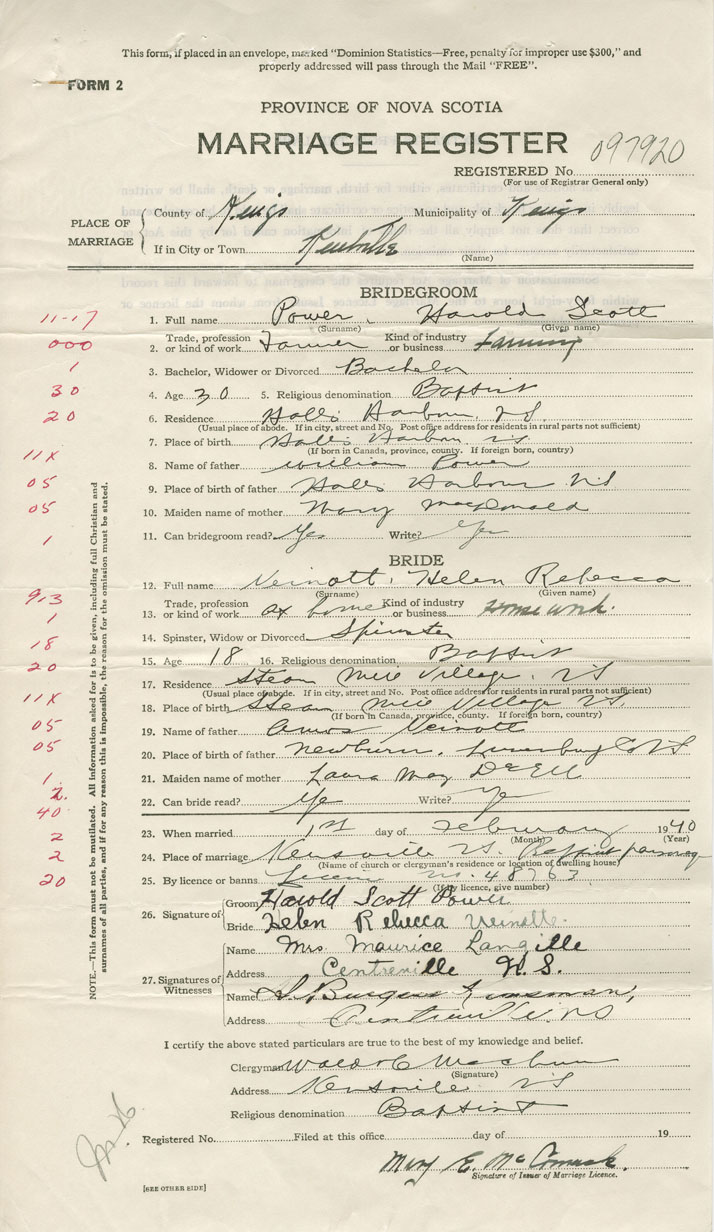 This form, if placed in an envelope, marked "Dominion Statistics—Free, penalty for improper use $300," and
properly addressed will pass through the Mail "FREE".
FORM 2
PROVINCE OF NOVA SCOTIA
MARRIAGE REGISTER
097920
REGISTERED No.
(For use of Registrar General only)
PLACE OF MARRIAGE
County of Kings Municipality of Kings
If in City or Town Kentville
(Name)
BRIDEGROOM
11-17
1. Full name Power, Harold Scott
(Surname) (Given name)
000
2. Trade, profession or kind of work Farmer Kind of industry or business Farming
1
3. Bachelor, Widower or Divorced Bachelor
30
4. Age 30 5. Religious denomination Baptist
20
6. Residence Halls Harbour, NS
(Usual place of abode. If in city, street and No. Post office address for residents in rural parts not sufficient)
7. Place of birth Halls Harbour NS
(If born in Canada, province, county. If foreign born, country)
11X
8. Name of father William Power
05
9. Place of birth of father Halls Harbour NS
05
10. Maiden name of mother Mary MacDonald
1
11. Can bridegroom read? Yes Write? Yes
BRIDE
12. Full name Veinott, Helen Rebecca
(Surname) (Given name)
9,3
1
13. Trade, profession or kind of work at home Kind of industry or business Home work.
14. Spinster, Widow or Divorced Spinster
18
15. Age 18 16. Religious denomination Baptist
20
17. Residence Steam Mill Village, NS
(Usual place of abode. If in city, street and No. Post office address for residents in rural parts not sufficient)
11X
18. Place of birth Steam Mill Village NS,
(If born in Canada, province, county. If foreign born, country)
05
19. Name of father Amos Veinott
05
20. Place of birth of father Newburn, Lunenburg Co NS
1.
21. Maiden name of mother Laura May
2.
22. Can bride read? Yes Write? Yes
40
2
23. When married 1st day of February 1940
(Month) (Year)
2
24. Place of marriage NS. Baptist parsonage
(Name of church or clergyman's residence or location of dwelling house)
20
25. By licence or banns License no. 48763
(If by licence, give number)
26. Signature of
Groom Harold Scott Power
Bride Helen Rebecca Veinotte.
27. Signatures of Witnesses
Name Mrs Maurice Langille
Address Centreville N.S.
Name S. Burgess Kinsman,
Address Centreville NS
NOTE.—This form must not be mutilated. All information asked for is to be given, including full Christian and
surnames of all parties, and if for any reason this is impossible, the reason for the omission must be stated.
I certify the above stated particulars are true to the best of my knowledge and belief.
Clergyman
(Signature)
Address NS
Religious denomination Baptist
Registered No. Filed at this office day of 19
Mary E. McCormick.
Signature of Issuer of Marriage Licence.
[SEE OTHER SIDE]